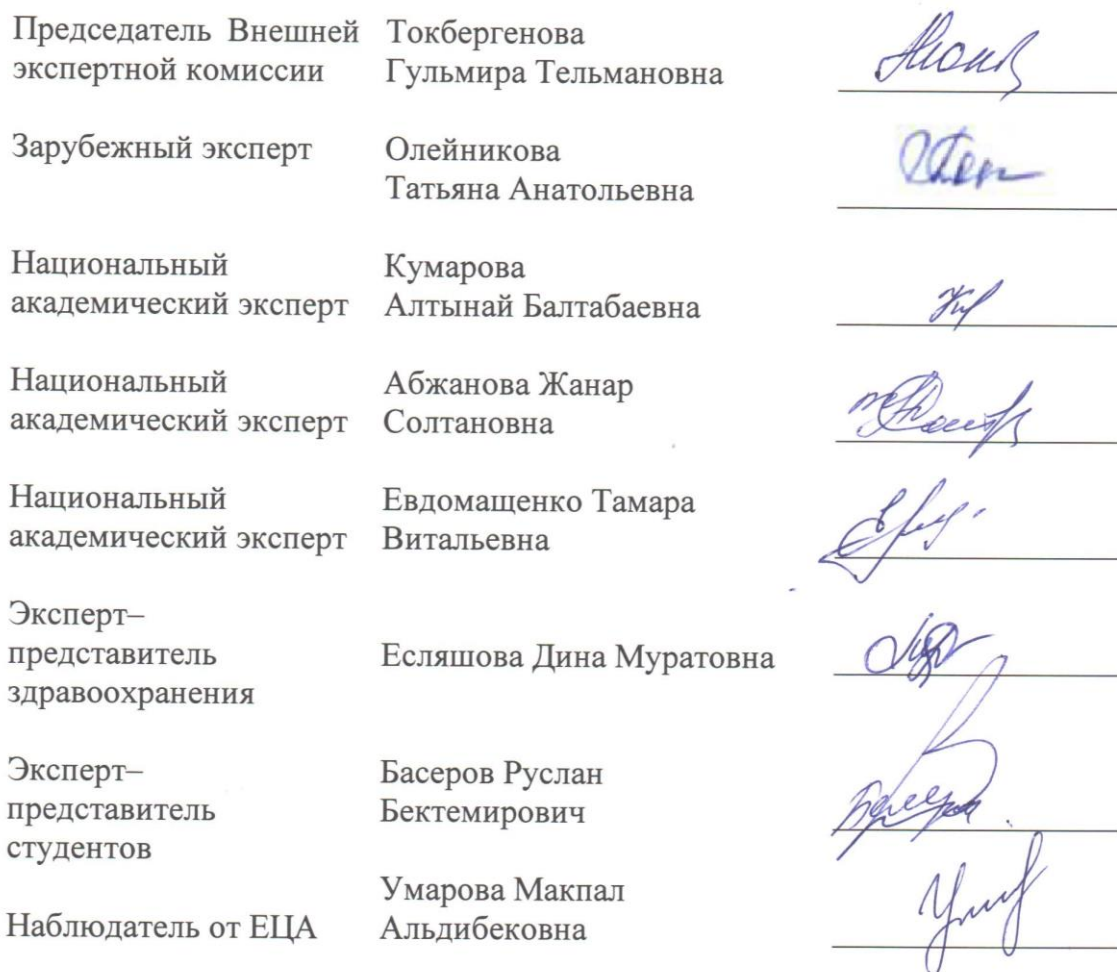 Председатель Внешней экспертной комиссии
Токбергенова
Гульмира Тельмановна
Зарубежный эксперт
Олейникова
Татьяна Анатольевна
Национальный
академический эксперт
Кумарова
Алтынай Балтабаевна
Национальный
академический эксперт
Абжанова Жанар
Солтановна
Национальный
академический эксперт
Евдомащенко Тамара
Витальевна
Эксперт–
представитель
здравоохранения
Есляшова Дина Муратовна
Эксперт–
представитель
студентов
Басеров Руслан
Бектемирович
Наблюдатель от ЕЦА
Умарова Макпал
Альдибековна